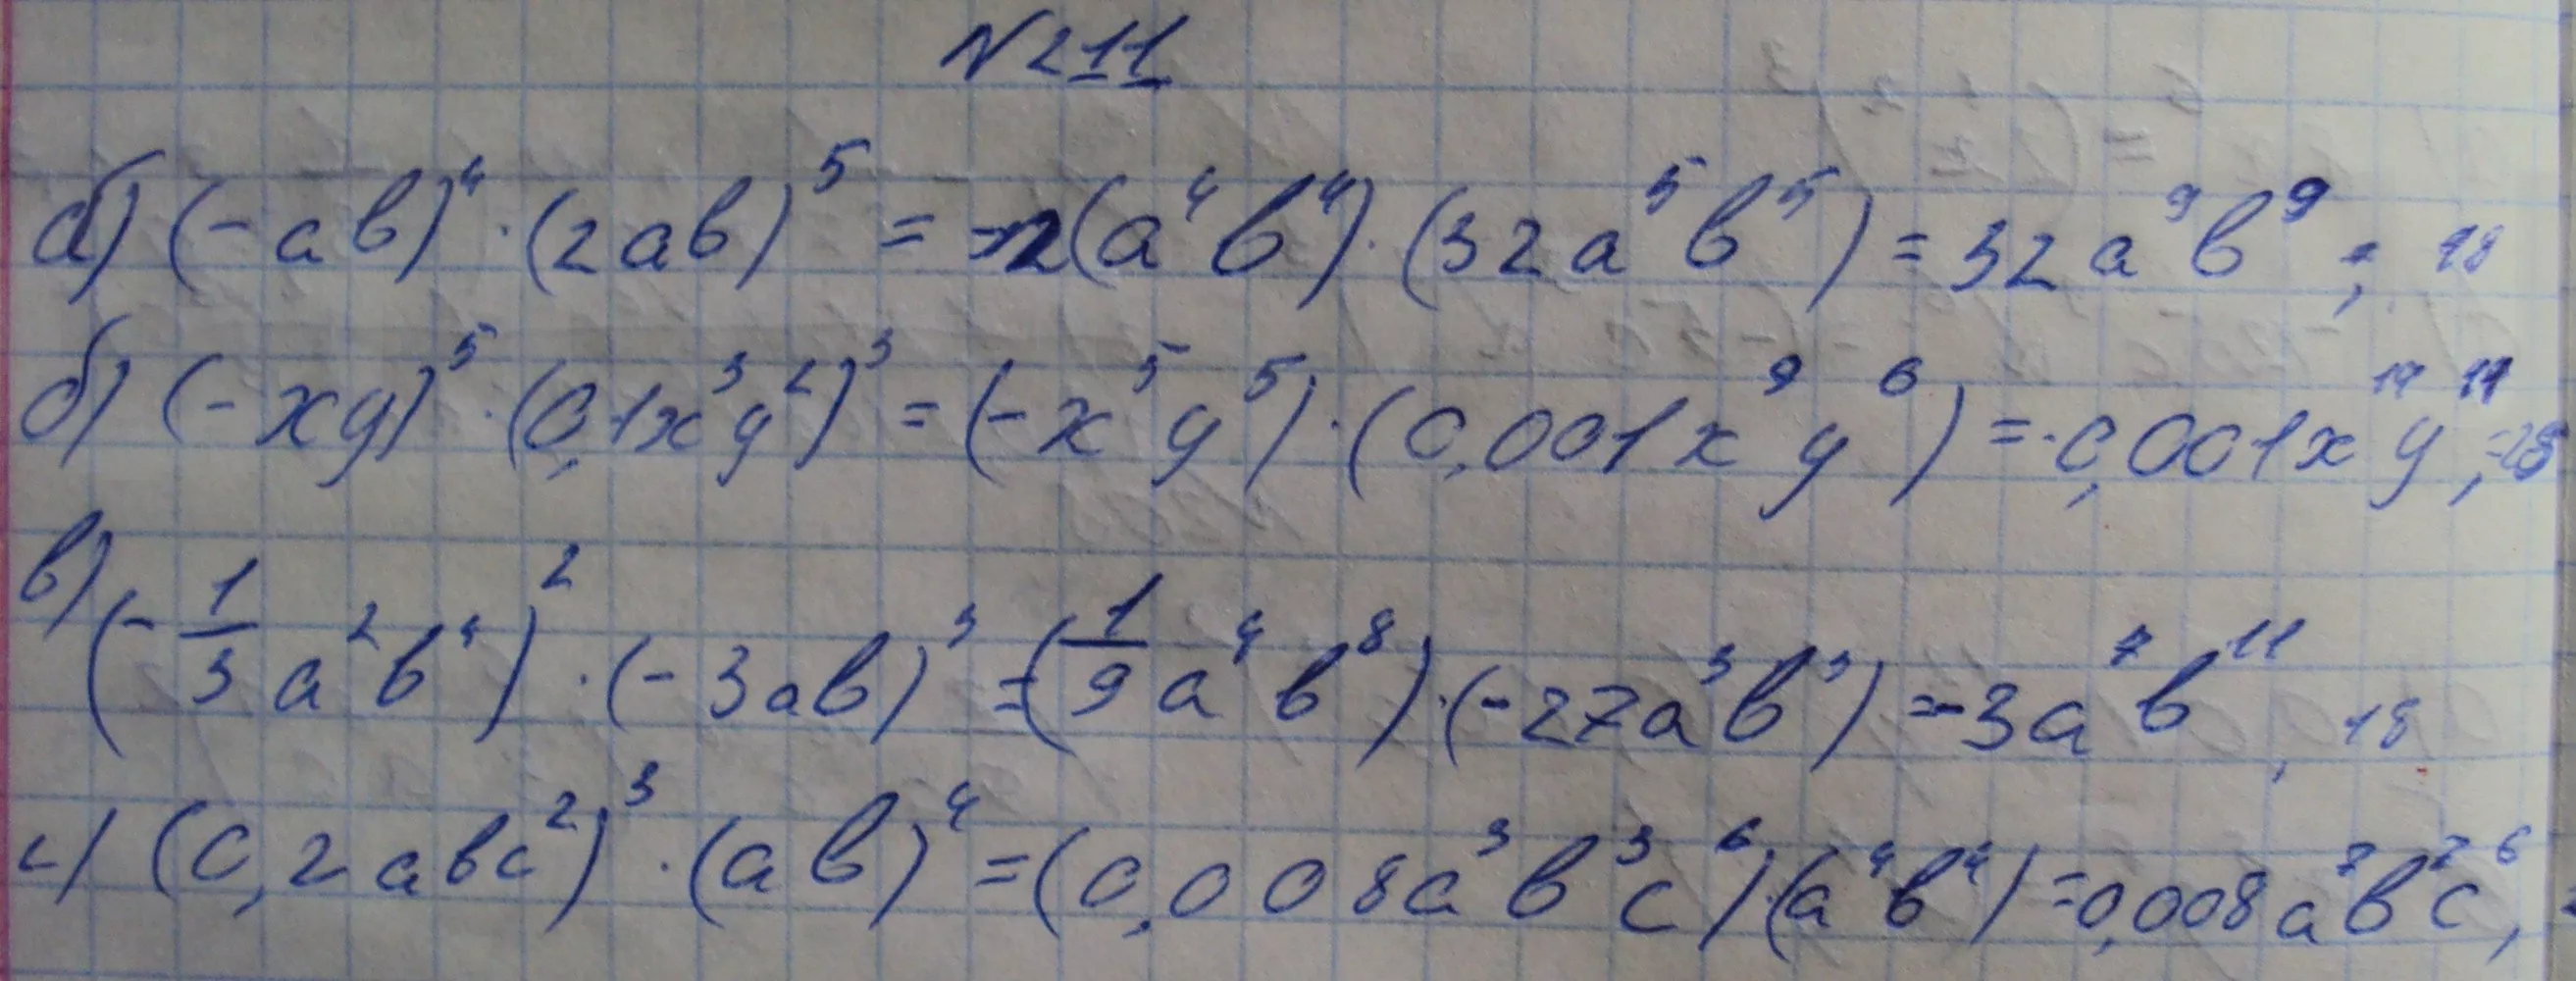 №211
а) (-ab)⁴·(2ab)⁵ = (a⁴b⁴)·(32a⁵b⁵) = 32a⁹b⁹; 18
б) (-xy)⁵·(0,1x³y²)³ = (-x⁵y⁵)·(0,001x⁹y⁶) = -0,001x¹⁴y¹¹, =25
в) (-1/3a²b⁴)²·(-3ab)³ = (1/9a⁴b⁸)·(-27a³b³) = -3a⁷b¹¹, 18
с) (0,2abc²)³·(ab)⁴ = (0,008a³b³c⁶)·(a⁴b⁴) = 0,008a⁷b⁷c⁶,